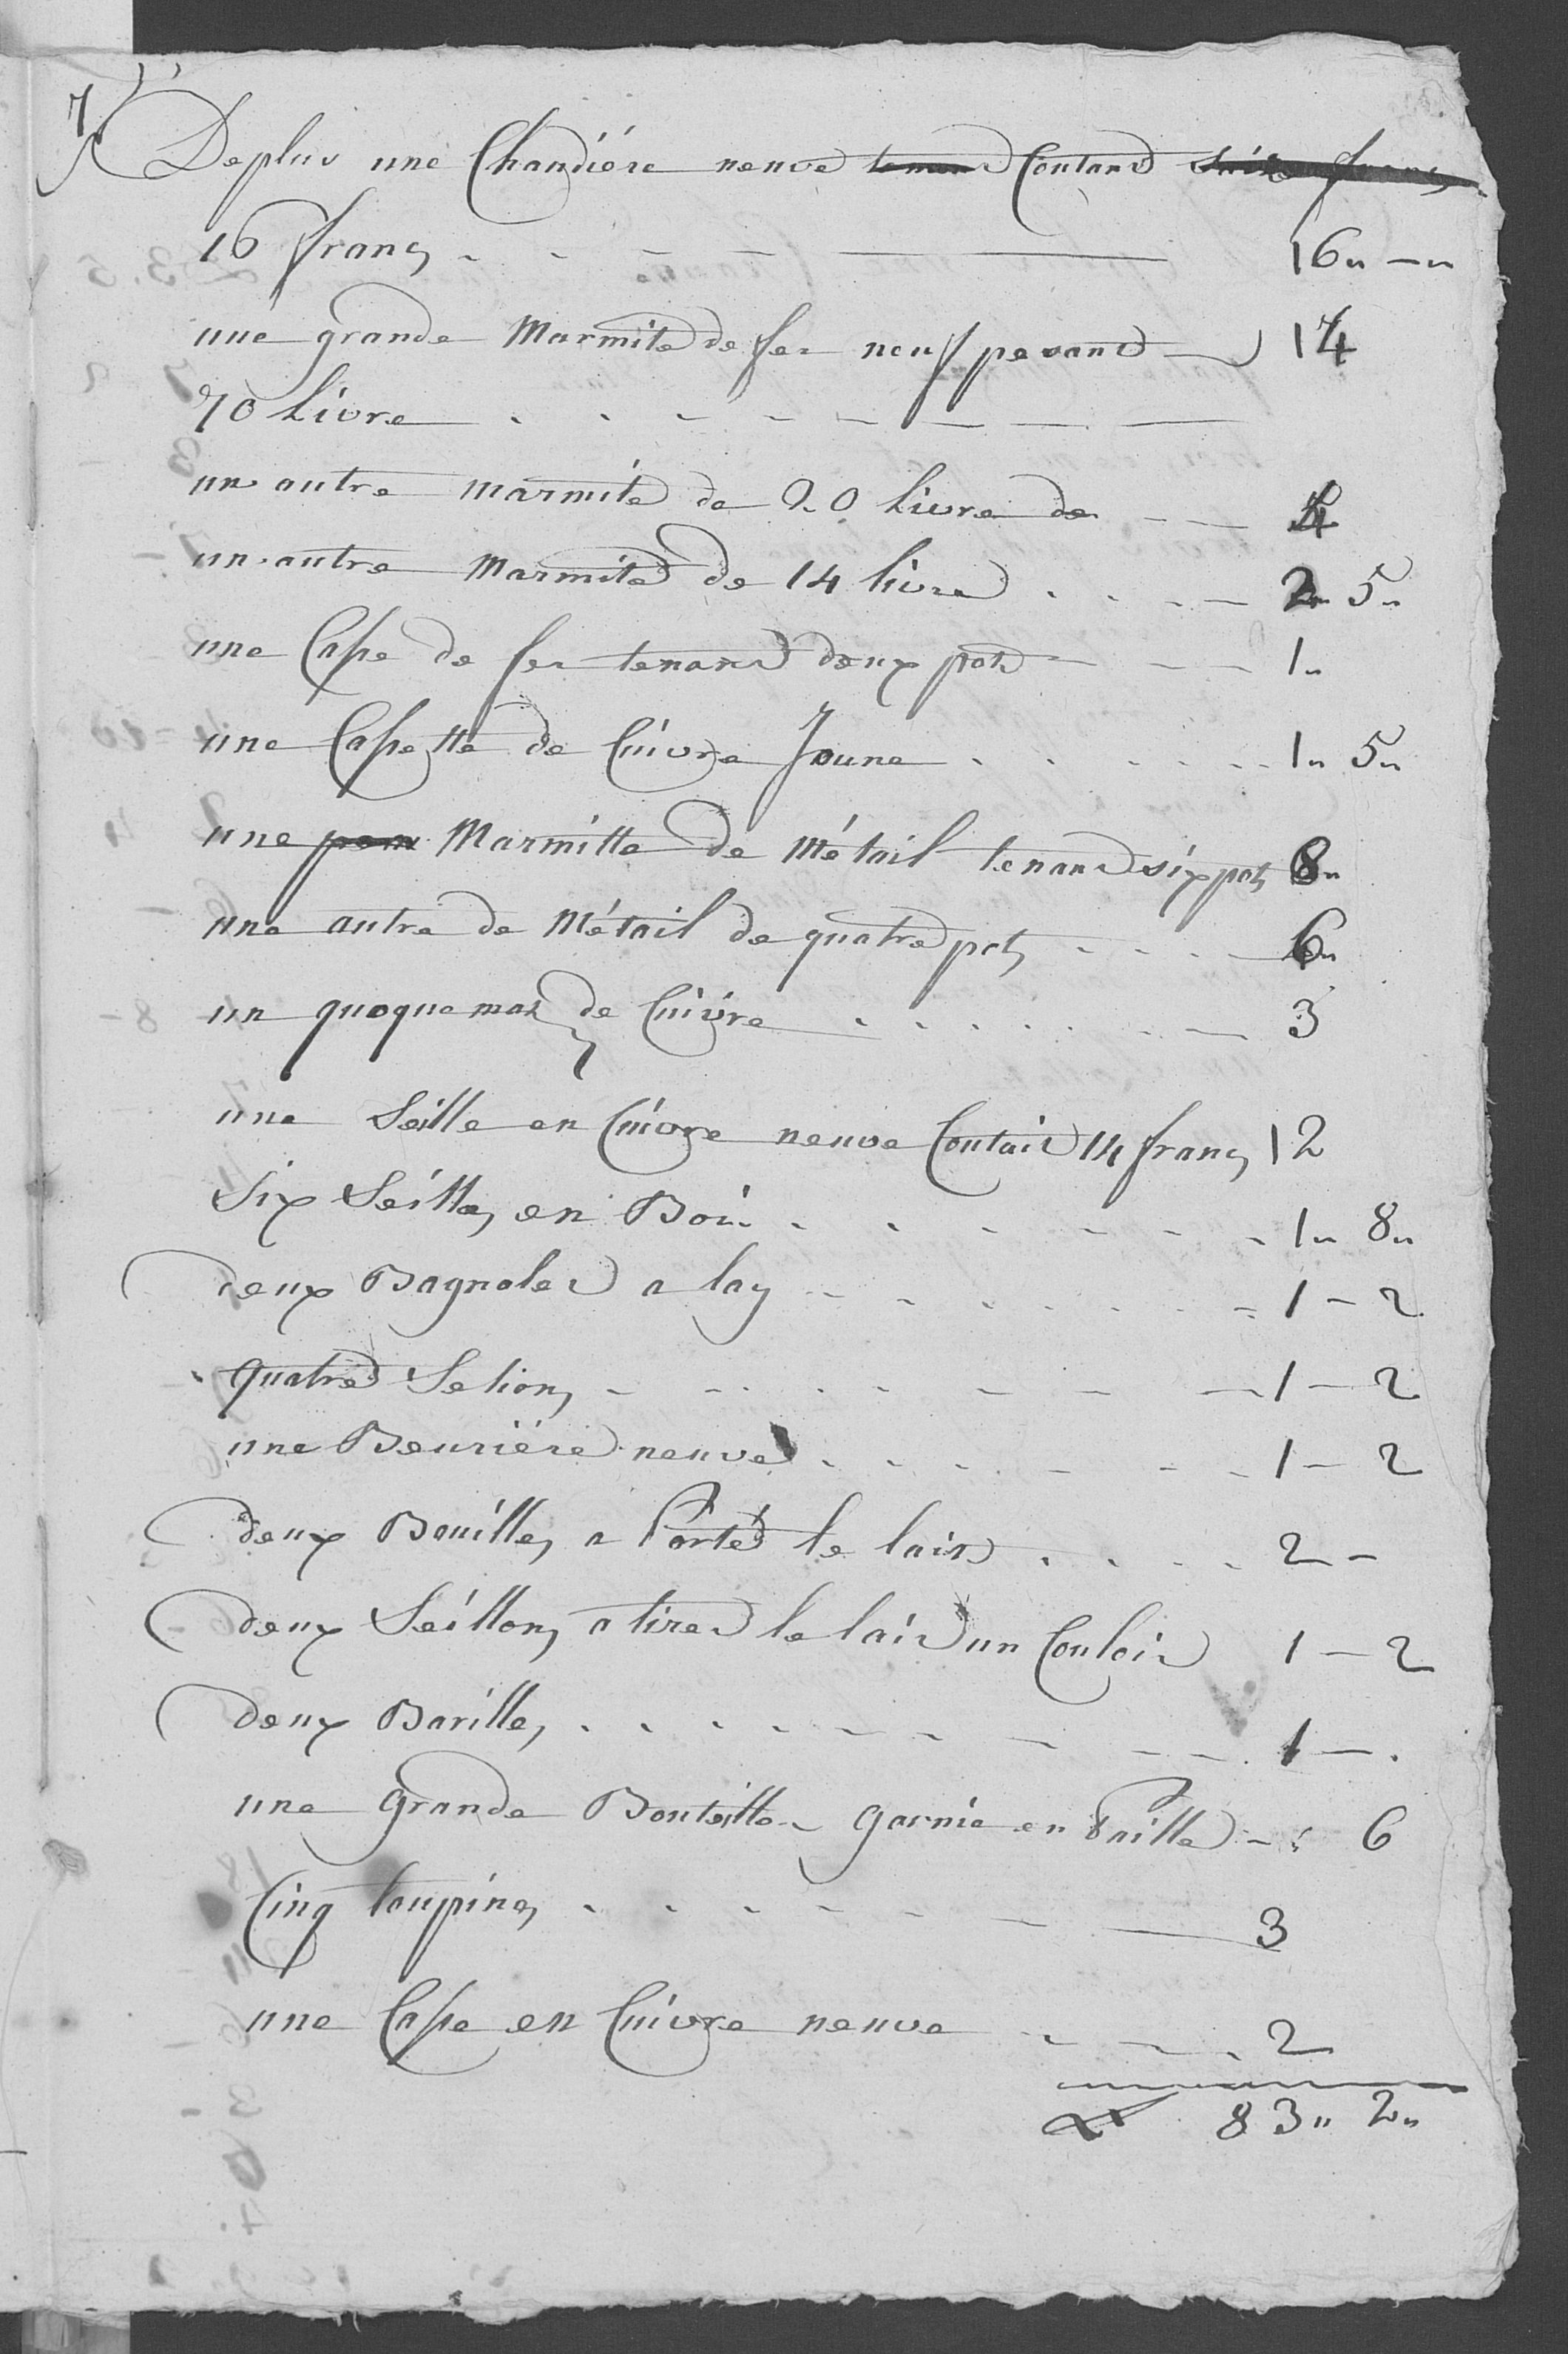 7
De plus une Chaudiére neuve tenan Coutand saize francs
16 francs . . - - - 16 " - "
une grande Marmite de fer neuf pesand 14
70 Livre . . . - - -
un autre marmite de 20 Livre de - - 4
un autre Marmite de 14 livre . . . - 2 " 5 "
une Casse de fer tenand deux pots - - - 1 "
une Cassette de Cuivre Joune . . . . . . 1 " 5 "
une pou Marmitte de Métail tenand six pots 8 "
une autre de Métail de quatre pots . . . . 6 "
un quoquemar de Cuivre . . . . . . - 3
une Seille en Cuivre neuve Coutait 14 francs 12
Six Seilles en Bois . . . . . . 1 " 8 "
deux Bagnoles a lay . . . . . . 1 - 2
quatre Selions - - . . - - - 1 - 2
une Beuriére neuve . . . - - - 1 - 2
deux Bouilles a Porté le lait . . . . 2 -
deux Seillons a tirer le lait un Couloir 1 - 2
deux Barilles . . . . - - - - 1 - .
une Grande Bouteille garnie en Paille - " 6
Cinq toupines . . . . . - - 3
une Casse en Cuivre neuve - - . 2
83 " 2 "